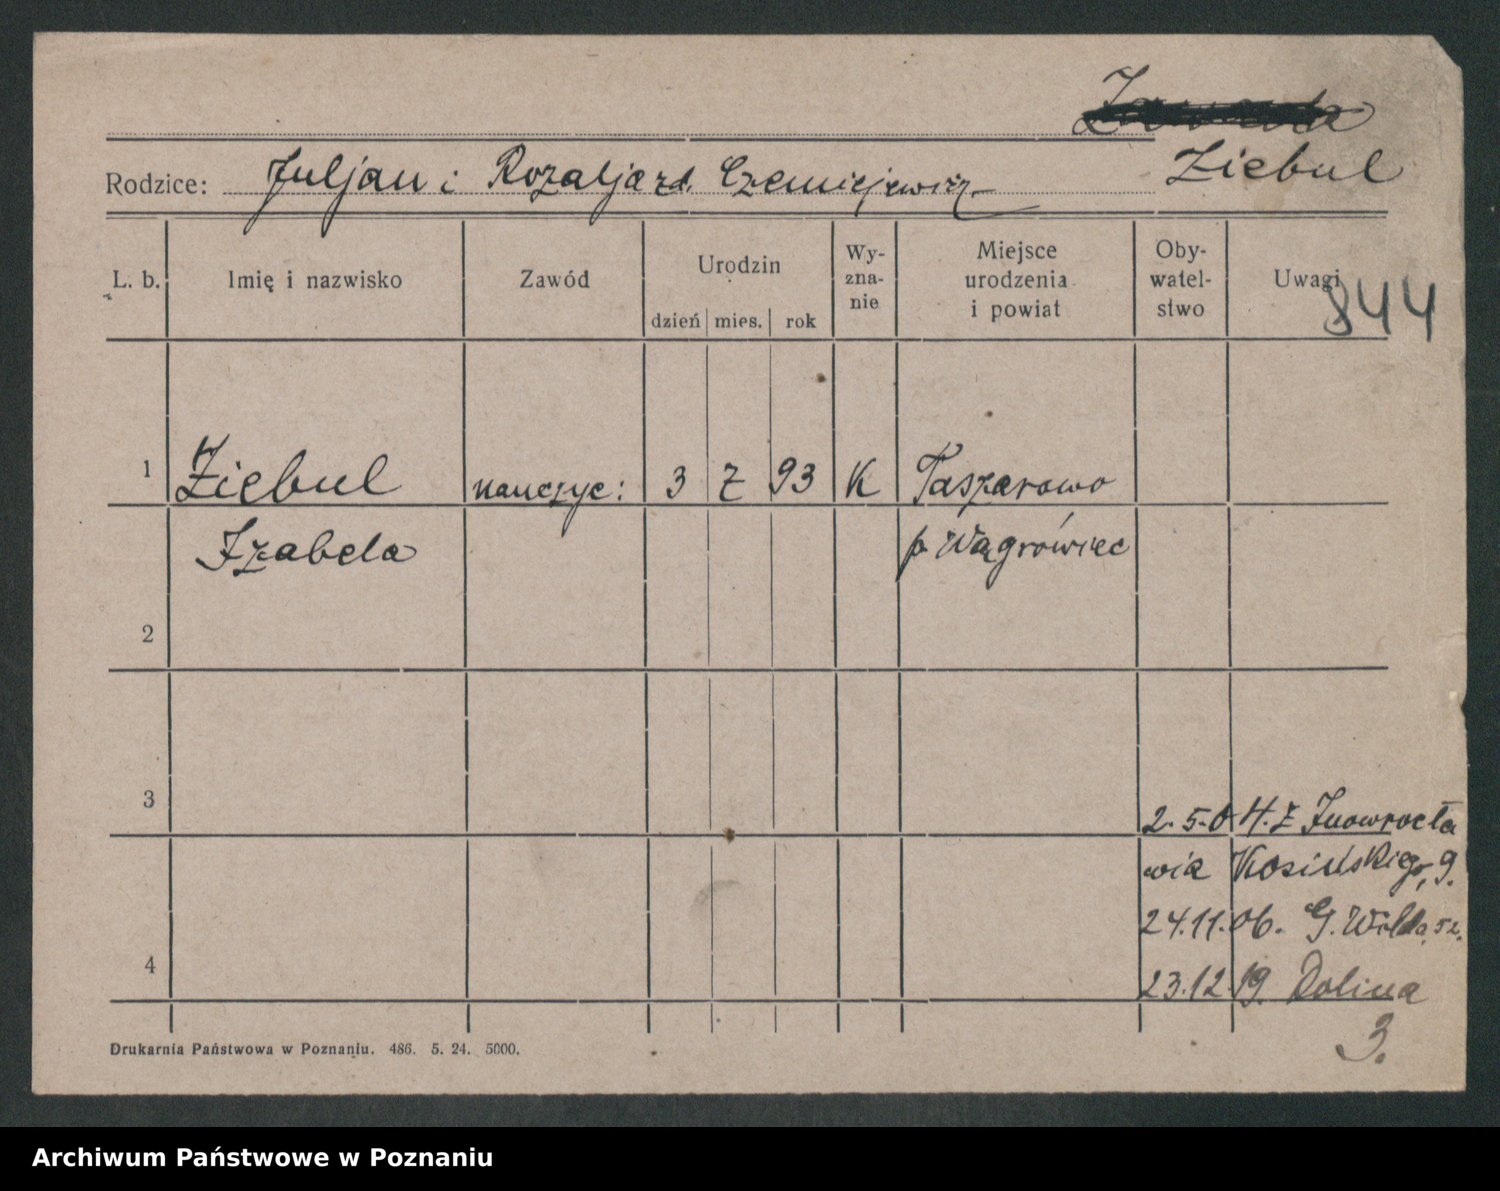 Ziebul
Rodzice: Juljan i Rozalja zd. Czemiejewicz
L. b.
Imię i nazwisko
Zawód
Urodzin
dzień mies. rok
Wy-
zna-
nie
Miejsce
urodzenia
i powiat
Oby-
watel-
stwo
Uwagi
844
1 Ziebul nauczyc: 3 2 93 K Taszarowo
Izabela p Wągrówiec
2
3
2. 5.0 H. Z Inowrocła
wia Kosińskiego, 9.
24.11.06. G. Wilda, 52.
4
23.12.19. Dolina
3.
Drukarnia Państwowa w Poznaniu. 486. 5. 24. 5000.
Archiwum Państwowe w Poznaniu